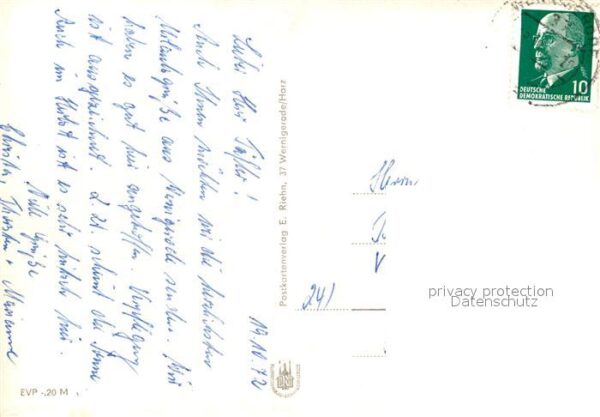 19.10.72
Lieber Herr
Auch Ihnen möchten wir die herzlichsten
Urlaubsgrüße aus Wernigerode senden. Wir
haben es gut hier angetroffen. Verpflegung
ist ausgezeichnet. Z. Zt. scheint die Sonne
Auch im Herbst ist es sehr hübsch hier.
Viele Grüße
Christa, Thorsten + Marianne
EVP -,20 M
Postkartenverlag E. Riehn, 37 Wernigerode/Harz
DEUTSCHE
DEMOKRATISCHE REPUBLIK
10
Herrn
241
privacy protection
Datenschutz